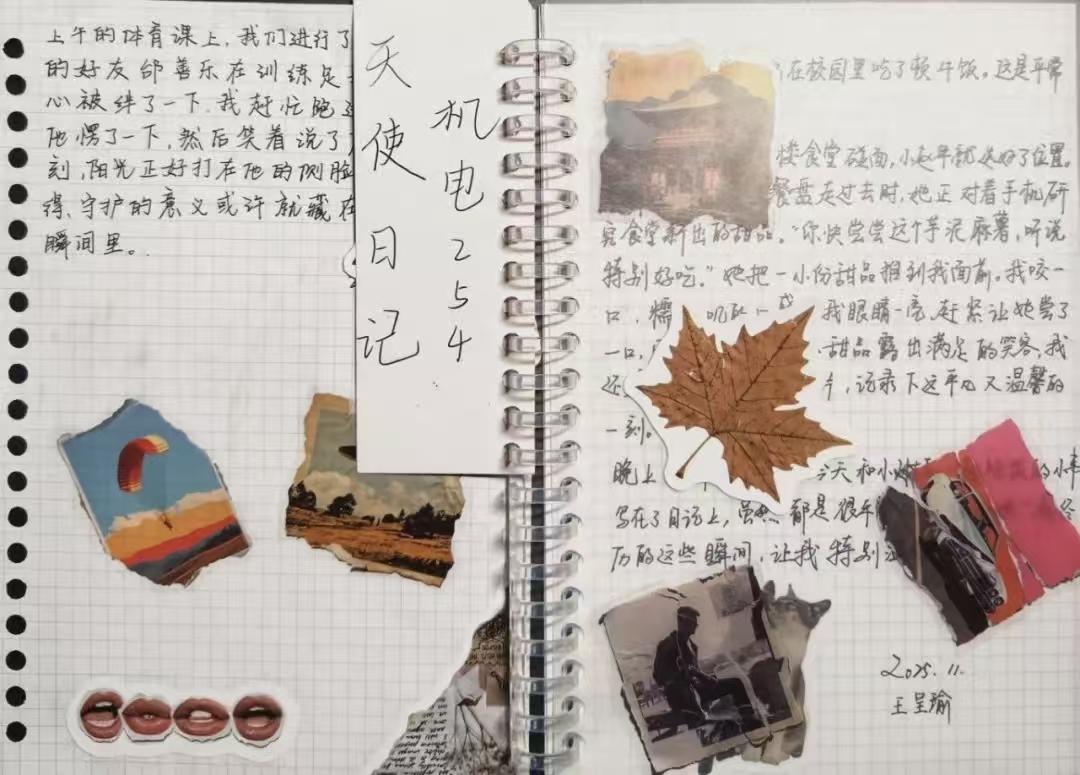 上午的体育课上，我们进行了
的好友邰善乐在训练足
心被绊了一下.我赶忙跑
他愣了一下，然后笑着说了
刻，阳光正好打在他的侧脸
得、守护的意义或许就藏在
瞬间里。
天使日记
机电254
在校园里吃了顿午饭。这是平常
楼食堂碰面，小赵早就选好了位置。
餐盘走过去时，她正对着手机研
究食堂新出的甜品。“你快尝尝这个芋泥麻薯，听说
特别好吃。”她把一小份甜品推到我面前。我咬一
口，糯 我眼睛一亮，赶紧让她尝了
一口， 甜品露出满足的笑容，我
还 片，记录下这平凡又温馨的
一刻。
晚上 今天和小 的小事
写在了日记上，虽然 都是很平
历的这些瞬间，让我特别
2025.11.
王呈瑜